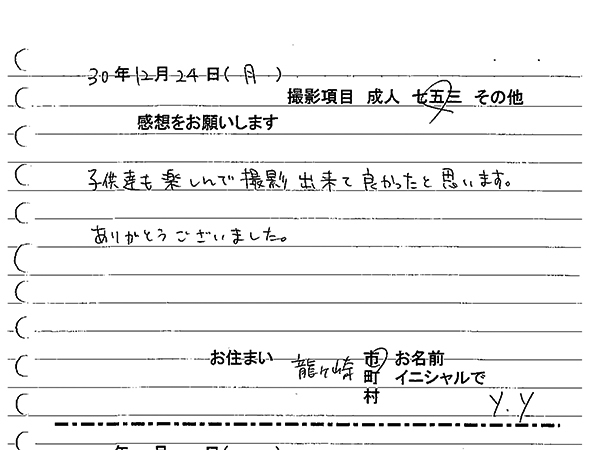 30年12月24日(月)
撮影項目 成人 七五三 その他
感想をお願いします
子供達も楽しんで撮影出来て良かったと思います。
ありがとうございました。
お住まい 龍ヶ崎 市 お名前
町 イニシャルで
村 Y.Y
年 月 日(